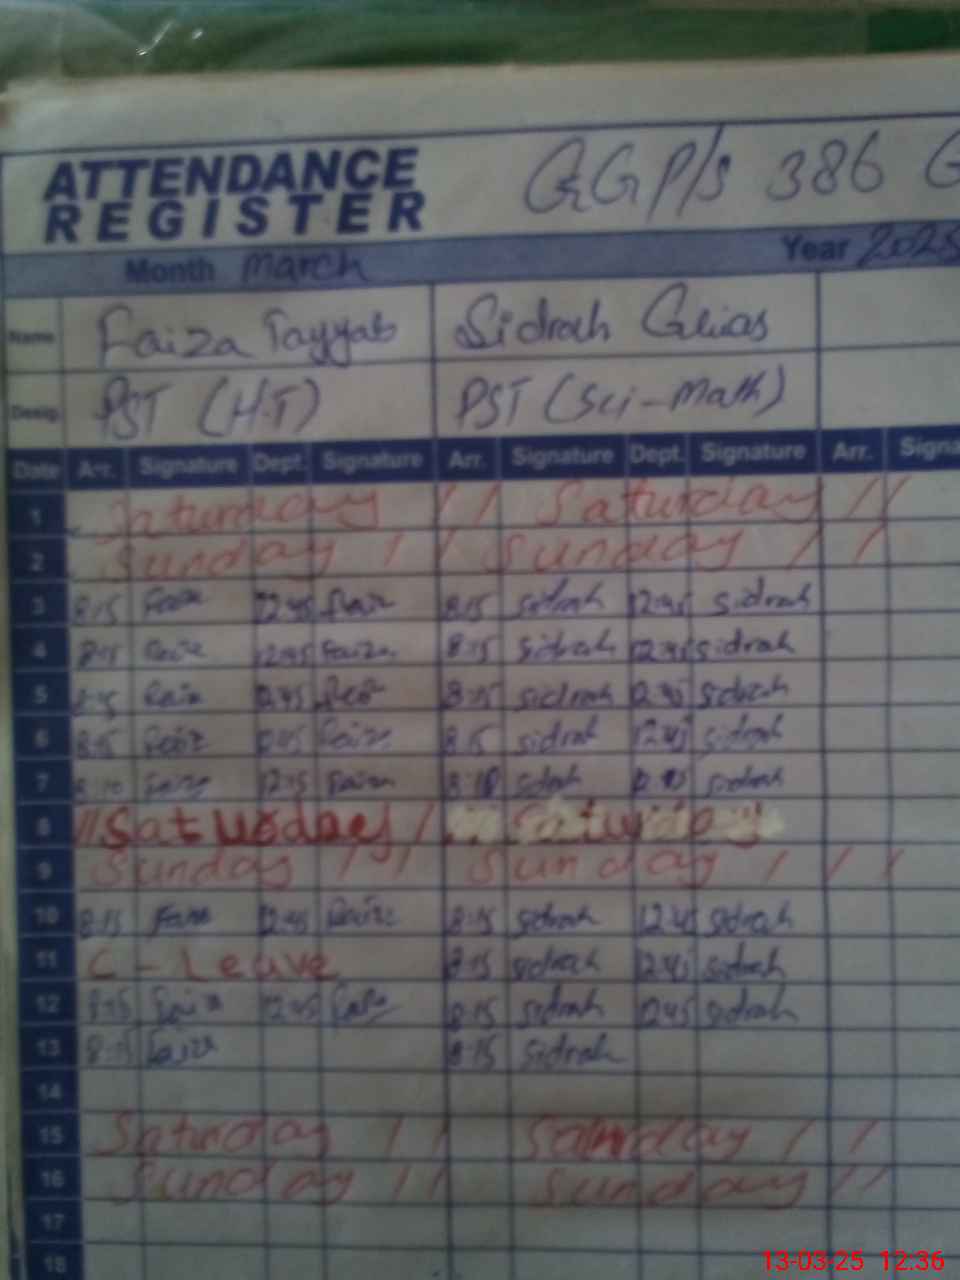 ATTENDANCE
REGISTER
GGP/S 386 G
Month March
Year 2025
Name Faiza Tayyab Sidrah
Desig. PST (H.T) PST (Sci-Math)
Date Arr. Signature Dept. Signature Arr. Signature Dept. Signature Arr. Signa
1 Saturday // Saturday //
2 Sunday // Sunday //
3 8:15 Faiza 12:45 Faiza 8:15 sidrah 12:45 sidrah
4 8:15 Faiza 12:45 Faiza 8:15 sidrah 12:45 sidrah
5 8:15 Faiza 12:45 8:15 sidrah 12:45 sidrah
6 8:15 Faiza 12:45 Faiza 8:15 sidrah 12:45 sidrah
7 Faiza Faiza sidrah sidrah
8 // Saturday / Saturday
9 Sunday // Sunday ///
10 8:15 Faiza 12:45 Faiza 8:15 sidrah 12:45 sidrah
11 C-Leave 8:15 sidrah 12:45 sidrah
12 8:15 Faiza 12:45 8:15 sidrah 12:45 sidrah
13 8:15 Faiza 8:15 sidrah
14
15 Saturday // Saturday //
16 Sunday // Sunday //
17
18
13-03-25 12:36